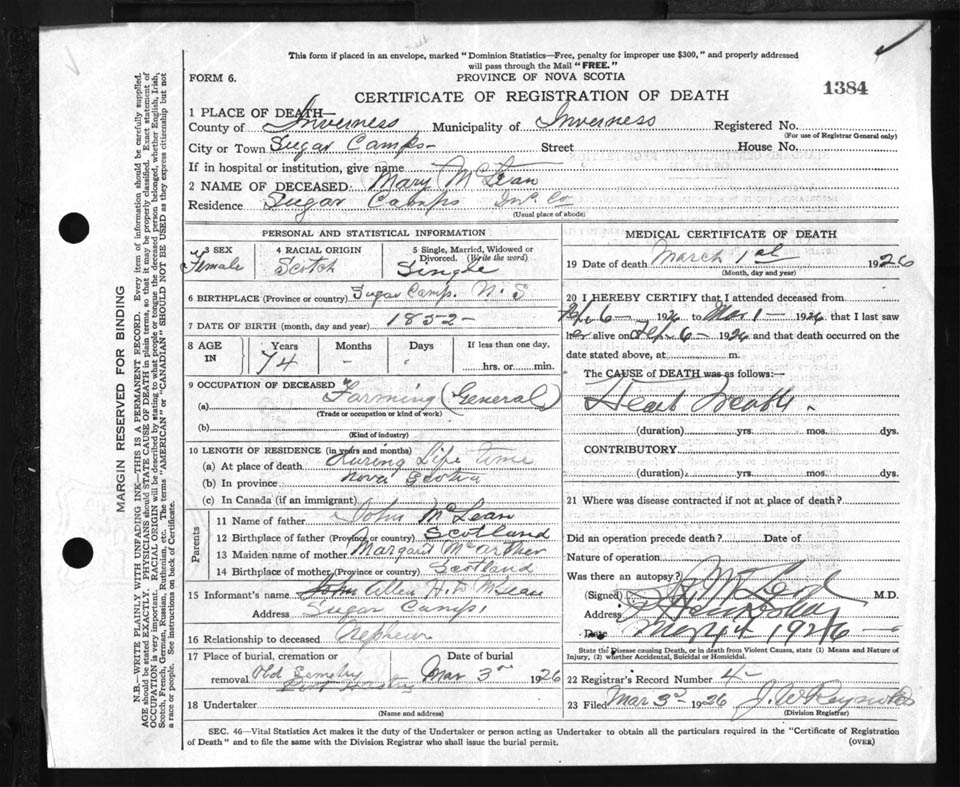 This form if placed in an envelope, marked "Dominion Statistics—Free, penalty for improper use $300," and properly addressed
will pass through the Mail "FREE."
FORM 6.
PROVINCE OF NOVA SCOTIA
1384
CERTIFICATE OF REGISTRATION OF DEATH
1 PLACE OF DEATH—
County of Inverness Municipality of Inverness Registered No.
(For use of Registrar General only)
City or Town Sugar Camps- Street House No.
If in hospital or institution, give name
2 NAME OF DECEASED: Mary McLean
Residence Sugar Camps Inv Co
(Usual place of abode)
PERSONAL AND STATISTICAL INFORMATION
3 SEX Female 4 RACIAL ORIGIN Scotch 5 Single, Married, Widowed or Divorced. (Write the word) Single
6 BIRTHPLACE (Province or country) Sugar Camp. N.S
7 DATE OF BIRTH (month, day and year) 1852-
8 AGE IN Years 74 Months - Days If less than one day, hrs. or min.
9 OCCUPATION OF DECEASED
(a) Farming (General)
(Trade or occupation or kind of work)
(b)
(Kind of industry)
10 LENGTH OF RESIDENCE (in years and months)
(a) At place of death During Life time
(b) In province Nova Scotia
(c) In Canada (if an immigrant)
Parents
11 Name of father John McLean
12 Birthplace of father (Province or country) Scotland
13 Maiden name of mother Margaret McArther
14 Birthplace of mother (Province or country) Scotland
15 Informant's name John Allen H. McLean
Address Sugar Camps,
16 Relationship to deceased Nepheu
17 Place of burial, cremation or removal Old Cemetry Port Hastings Date of burial Mar 3rd 1926
18 Undertaker
(Name and Address)
MEDICAL CERTIFICATE OF DEATH
19 Date of death March 1st 1926
(Month, day and year)
20 I HEREBY CERTIFY that I attended deceased from
Feb 6- 1926 to Mar 1- 1926, that I last saw
her alive on Feb 6- 1926 and that death occurred on
date stated above, at m.
The CAUSE of DEATH was as follows:—
Heart
(duration) yrs. mos. dys.
CONTRIBUTORY
(duration) yrs. mos. dys.
21 Where was disease contracted if not at place of death?
Did an operation precede death? Date of
Nature of operation
Was there an autopsy?
(Signed) M.D.
Address
Date 1926
State the Disease causing Death, or in death from Violent Causes, state (1) Means and Nature of
Injury, (2) whether Accidental, Suicidal or Homicidal.
22 Registrar's Record Number 4-
23 Filed Mar 3rd 1926 J. W. Reynolds
(Division Registrar)
SEC. 46—Vital Statistics Act makes it the duty of the Undertaker or person acting as Undertaker to obtain all the particulars required in the "Certificate of Registration
of Death" and to file the same with the Division Registrar who shall issue the burial permit. (OVER)
MARGIN RESERVED FOR BINDING
N.B.—WRITE PLAINLY WITH UNFADING INK—THIS IS A PERMANENT RECORD. Every item of information should be carefully supplied.
AGE should be stated EXACTLY. PHYSICIANS should STATE CAUSE OF DEATH in plain terms, so that it may be properly classified. Exact statement of
OCCUPATION is very important. RACIAL ORIGIN will be described by stating to what people or tongue the deceased person belonged, whether English, Irish,
Scotch, French, German, Russian, Ruthenian, etc. The terms "AMERICAN" or "CANADIAN" SHOULD NOT BE USED as they express citizenship but not
a race or people. See instructions on back of Certificate.